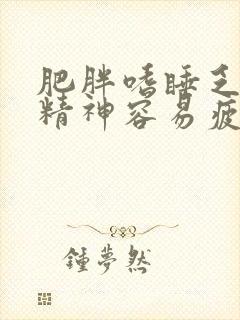 肥胖嗜睡乏
精神容易疲
鍾夢然